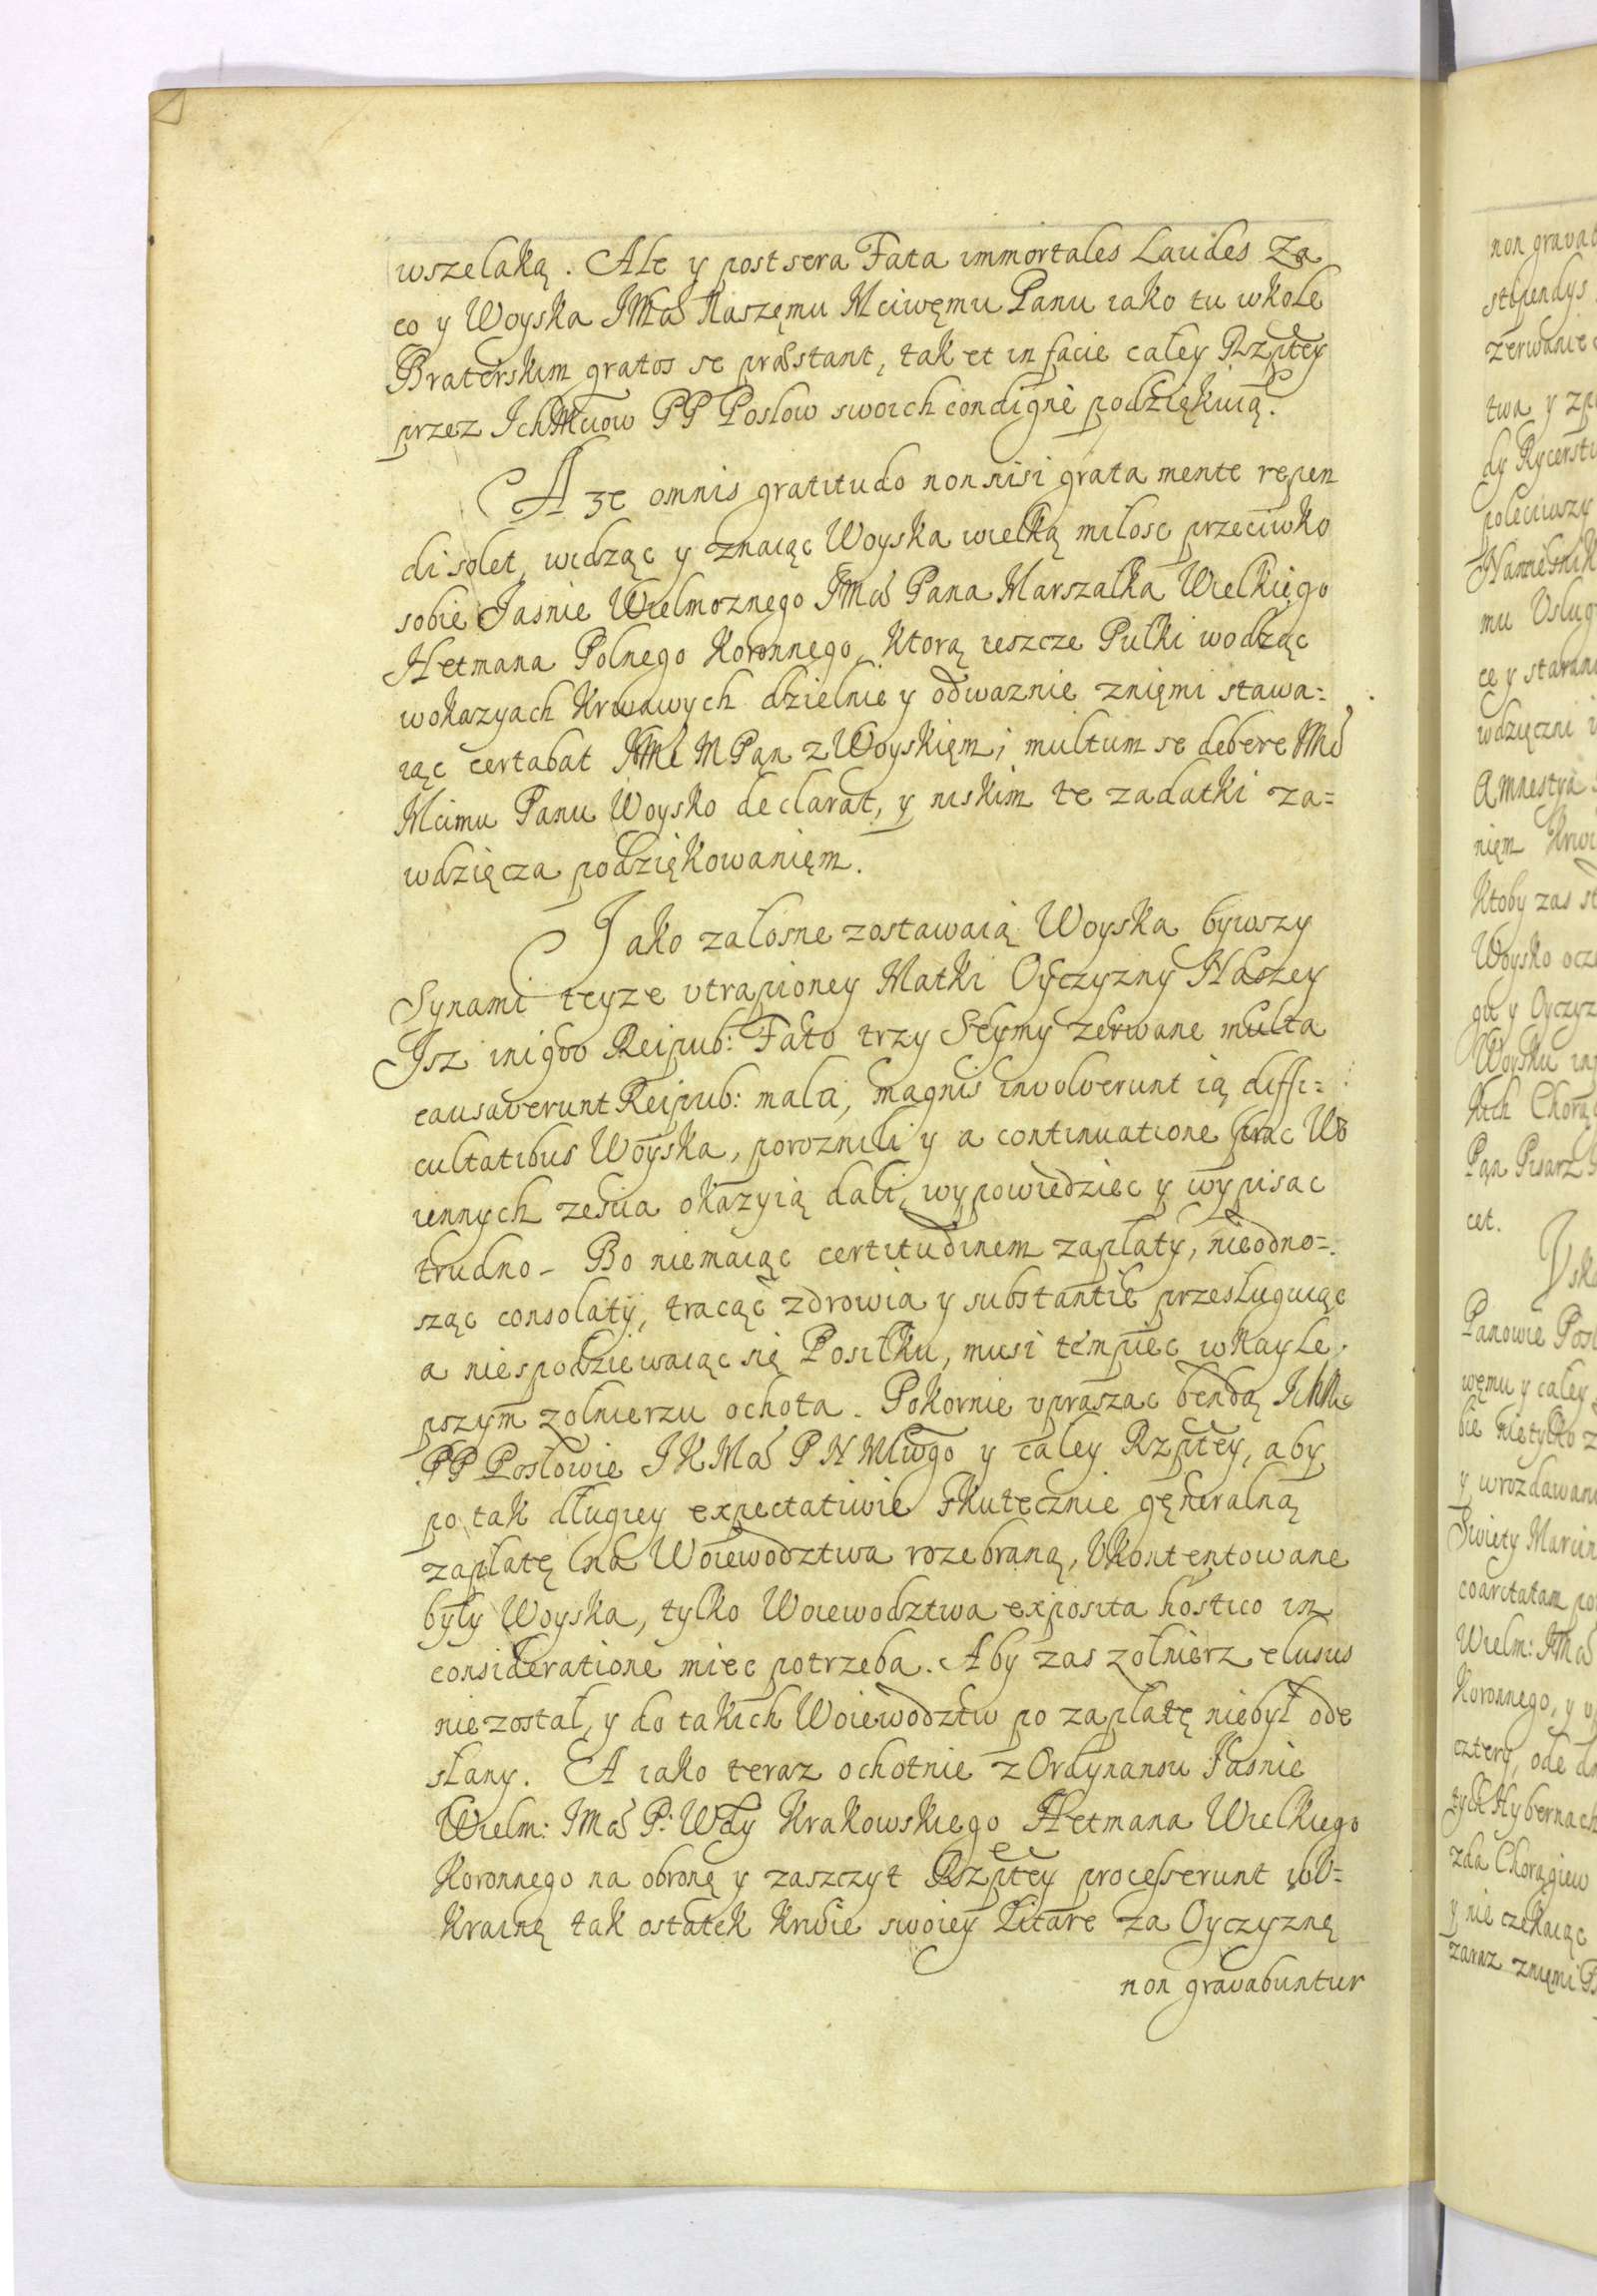 wszelaką. Ale y post sera Fata immortales Laudes Za
co y Woyska JMci Naszęmu Mciwęmu Panu iako tu wkole
Braterskim gratos se præstant, tak et in facie całey Rzptey
przez IchMciow PP Posłow swoich condigne podziękuią.
A ze omnis gratitudo non nisi grata mente repen
di solet, widząc y znaiąc Woyska wielką miłosc przeciwko
sobie Jasnie Wielmoznego JMci Pana Marszałka Wielkięgo
Hetmana Polnego Koronnego, Ktorą ieszcze Pułki wodząc
wokazyach Krwawych dzielnie y odwaznie znięmi stawa=
iąc certabat JMć M Pan z Woyskięm; multum se debere JMci
Mcimu Panu Woysko declarat, y niskim te zadatki za=
wdzięcza podziękowanięm.
Jako załosne zostawaią Woyska bywszy
Synami teyze utrapioney Matki Oyczyzny Naszey
Isz iniquo Reipub: Fato trzy Seymy zerwane multa
causaverunt Reipub: mala, magnis involverunt ią diffi=
cultatibus Woyska, poroznili y a continuatione prac Wo
iennych zescia okazyią dali, wypowiedziec y wypisac
trudno _ Bo niemaiąc certitudinem zapłaty, nieodno=
sząc consolaty, tracąc zdrowia y substantie przesługuiąc
a niespodziewaiąc się Posiłku, musi tempiec wNayle
pszym zołnierzu ochota. Pokornie upraszac bendą IchMc
PP Posłowie JKMci P N Mlwgo y całey Rzptey, aby
po tak długiey expectatiwie skutecznie gęneralną
zapłatę na Woiewodztwa rozebraną, Ukontentowane
były Woyska, tylko Woiewodztwa exposita hostico in
consideratione miec potrzeba. Aby zas zołnierz elusus
niezostał, y do takich Woiewodztw po zapłatę niebył ode
słany. A iako teraz ochotnie z Ordynansu Jasnie
Wielm: JMci P: Wdy Krakowskiego Hetmana Wielkiego
Koronnego na obronę y zaszczyt Rszptey processerunt wU=
Krainę tak ostatek Krwie swoiey Litare za Oyczyznę
non gravabuntur
non gravab
stipendys
zerwanie
twa y
dy Rycerst
poleciwszy
Namiesnik
mu Usług
ce y staran
wdzięczni
Amnestya
nięm Krwi
Ktoby zas
Woysko
y Oyczyz
Woysku
Kich Chorą
Pan Pisarz
cet.
Panowie Posł
węmu y całey
bie nietylko
y wrozdawan
Swiety Marcin
coarctatam
Wielm: JMci
Koronnego, y
cztery,
tych Hybernach
zda Chorągiew
y nie czekaiąc
zaraz znięmi